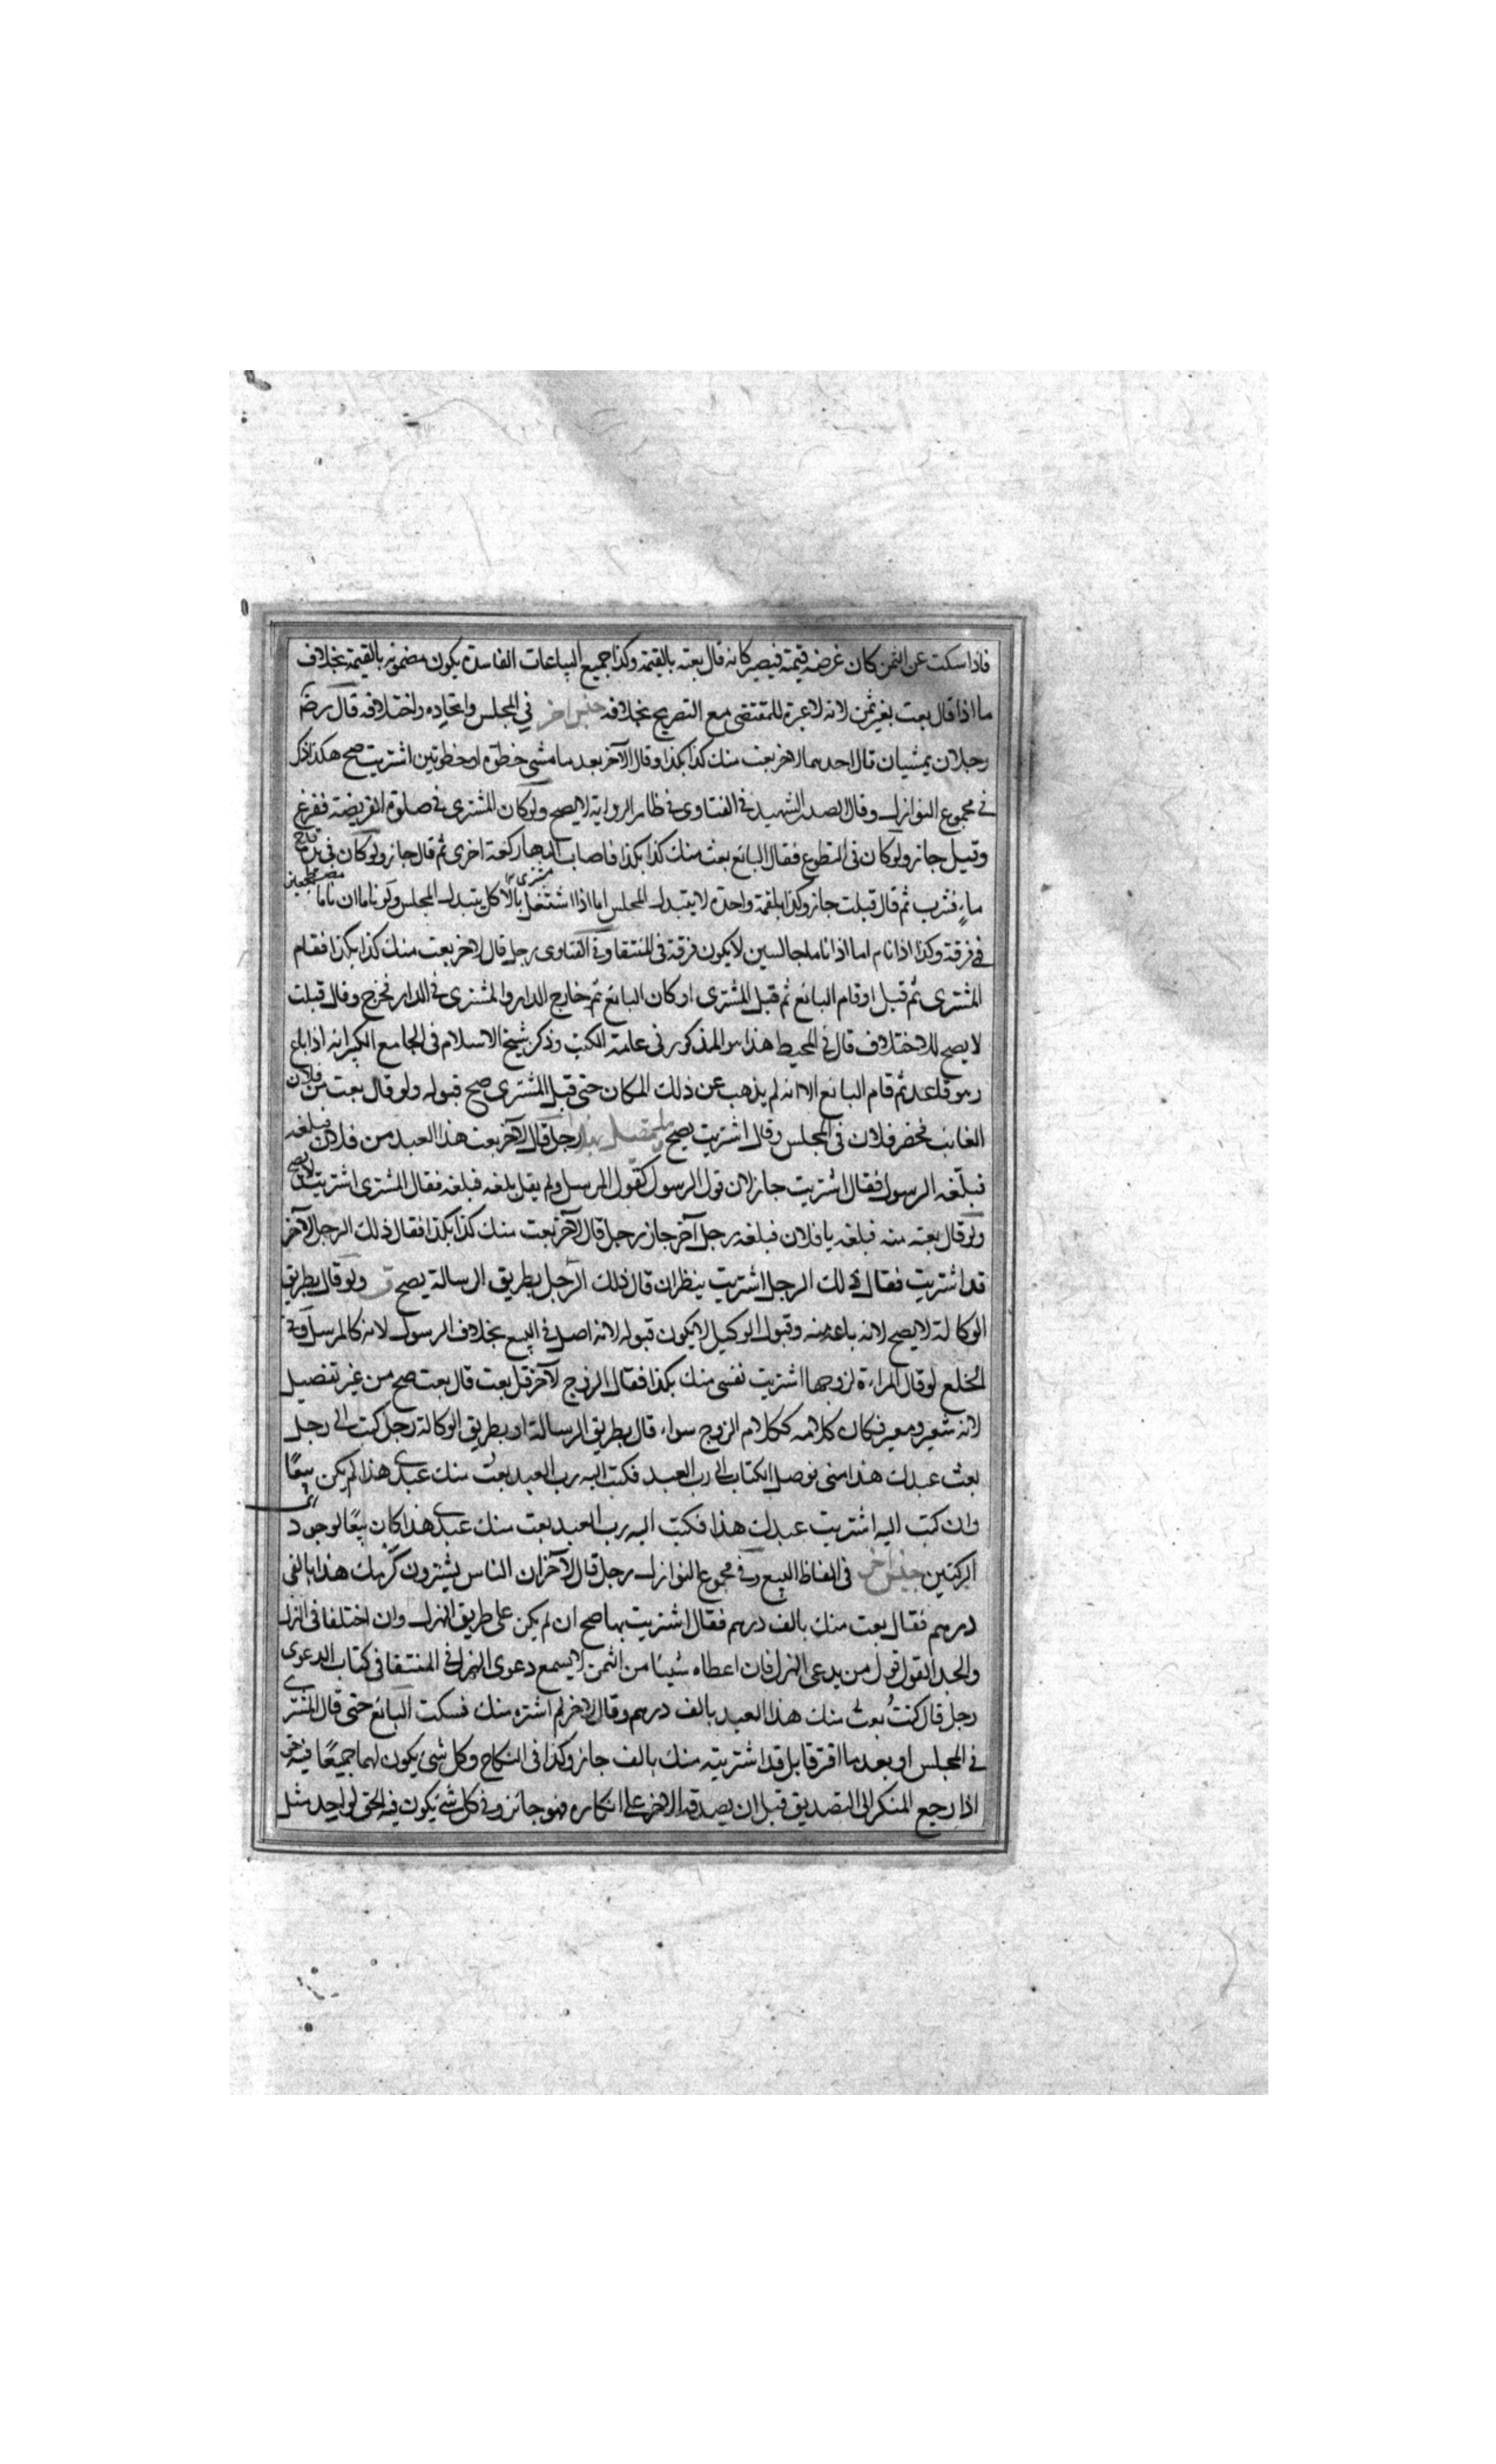 فاذا سكت عن الثمن كان غرضه قيمته فيصير كانه قال بعته بالقيمة وكذا جميع البياعات الفاسدة يكون مضمونه بالقيمة بخلاف
ما اذا قال بعت بغير ثمن لانه لا عبرة للمقتضى مع التصريح بخلافه جنس اخر في المجلس واتحاده واختلافه قال رضه
رجلان يمشيان قال احدهما لاخر بعت منك كذا بكذا وقال الآخر بعد ما مشى خطوة او خطوتين اشتريت صح هكذا ذكر
في مجموع النوازل وقال الصدر الشهيد في الفتاوى في ظاهر الرواية لا يصح ولو كان المشترى في صلوة الفريضة ففرغ
وقيل جاز ولو كان في التطوع فقال البائع بعت منك كذا بكذا فاضاف اليها ركعة اخرى ثم قال جاز ولو كان في يده قدح
ماء فشرب ثم قال قبلت جاز وكذا بلقمة واحدة لا يتبدل المجلس اما اذا اشتغل بالاكل يتبدل المجلس ولو ناما ان ناما مضطجعين
في فرقة وكذا اذا نام اما اذا ناما جالسين لا يكون فرقة في المنتقا وفي الفتاوى رجل قال لاخر بعت منك كذا بكذا فقام
المشترى ثم قبل او قام البائع ثم قبل المشترى او كان البائع ثم خارج الدار والمشترى في الدار فخرج وقال قبلت
لا يصح للاختلاف قال في المحيط هذا هو المذكور في عامة الكتب وذكر شيخ الاسلام في الجامع الكبير انه اذا باع
وهو قاعد ثم قام البائع الا انه لم يذهب عن ذلك المكان حتى قبل المشترى صح قبوله ولو قال بعت من فلان
الغائب فحضر فلان في المجلس وقال اشتريت يصح رجل قال لآخر بعت هذا العبد من فلان فبلغه
فبلغه الرسول فقال اشتريت جاز لان قول الرسول كقول المرسل ولم يقل بلغه فبلغه فقال المشترى اشتريت لا يصح
ولو قال بعته منه فبلغه يا فلان فبلغه رجل آخر جاز رجل قال لآخر بعت منك كذا بكذا فقال ذلك الرجل لآخر
قد اشتريت فقال ذلك الرجل اشتريت ينظر ان قال ذلك الرجل بطريق الرسالة يصح ولو قال بطريق
الوكالة لا يصح لانه باعه منه وقبول الوكيل لا يكون قبوله لانه اصل في البيع بخلاف الرسول لانه كالمرسل وفي
الخلع لو قال المراءة لزوجها اشتريت نفسى منك بكذا فقال الزوج لآخر قل بعت قال بعت صح من غير تفصيل
لانه سفير ومعبر فكان كلامه ككلام الزوج سواء قال بطريق الرسالة او بطريق الوكالة رجل كتب الى رجل
بعت عبدك هذا منى فوصل الكتاب الى رب العبد فكتب اليه رب العبد بعت منك عبدي هذا لم يكن بيعًا
وان كتب اليه اشتريت عبدك هذا فكتب اليه رب العبد بعت منك عبدي هذا كان بيعًا لوجود
الركنين جنس اخر في الفاظ البيع وفي مجموع النوازل رجل قال لآخر ان الناس يشترون كرمك هذا بالفى
درهم فقال بعت منك بالف درهم فقال اشتريت بها صح ان لم يكن على طريق الهزل وان اختلفا في الهزل
والجد القول قول من يدعى الهزل فان اعطاه شيئا من الثمن لا يسمع دعوى الهزل في المنتقا في كتاب الدعوى
رجل قال كنت بعت منك هذا العبد بالف درهم وقال لاخر لم اشتره منك فسكت البائع حتى قال المشترى
في المجلس او بعد ما افترقا بل قد اشتريته منك بالف جاز وكذا في النكاح وكل شئ يكون لهما جميعًا فيه حق
اذا رجع المنكر الى التصديق قبل ان يصدقه الاخر على انكاره فهو جائز وفي كل شئ يكون فيه الحق لواحد مثل